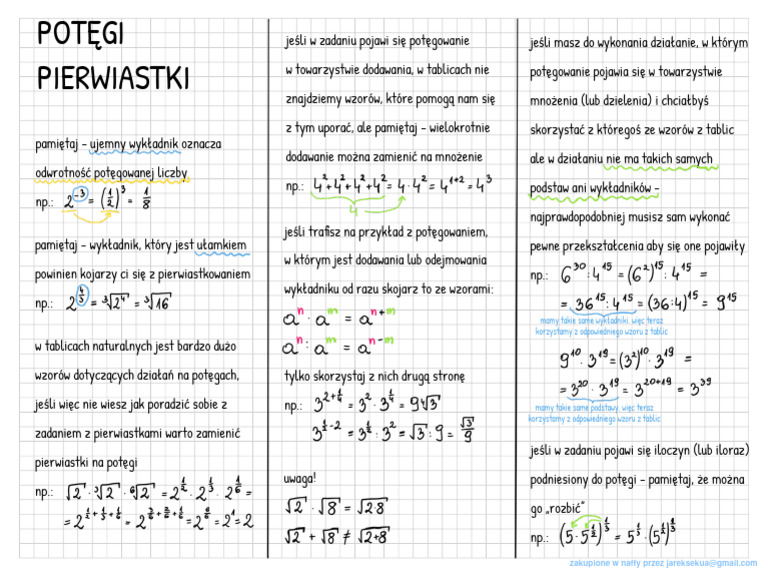 POTĘGI
PIERWIASTKI
pamiętaj - ujemny wykładnik oznacza
odwrotność potęgowanej liczby
np.: 2^{-3} = (1/2)^3 = 1/8
pamiętaj - wykładnik, który jest ułamkiem
powinien kojarzy ci się z pierwiastkowaniem
np.: 2^{4/3} = ³√2⁴ = ³√16
w tablicach naturalnych jest bardzo dużo
wzorów dotyczących działań na potęgach,
jeśli więc nie wiesz jak poradzić sobie z
zadaniem z pierwiastkami warto zamienić
pierwiastki na potęgi
np.: √2 · ³√2 · ⁶√2 = 2^{1/2} · 2^{1/3} · 2^{1/6} =
= 2^{1/2+1/3+1/6} = 2^{3/6+2/6+1/6} = 2^{6/6} = 2^1 = 2
jeśli w zadaniu pojawi się potęgowanie
w towarzystwie dodawania, w tablicach nie
znajdziemy wzorów, które pomogą nam się
z tym uporać, ale pamiętaj - wielokrotnie
dodawanie można zamienić na mnożenie
np.: 4²+4²+4²+4² = 4·4² = 4^{1+2} = 4³
4
jeśli trafisz na przykład z potęgowaniem,
w którym jest dodawania lub odejmowania
wykładniku od razu skojarz to ze wzorami:
a^n · a^m = a^{n+m}
a^n : a^m = a^{n-m}
tylko skorzystaj z nich drugą stronę
np.: 3^{2+1/4} = 3² · 3^{1/4} = 9⁴√3
3^{1/2-2} = 3^{1/2} : 3² = √3 : 9 = √3/9
uwaga!
√2 · √8 = √2·8
√2 + √8 ≠ √2+8
jeśli masz do wykonania działanie, w którym
potęgowanie pojawia się w towarzystwie
mnożenia (lub dzielenia) i chciałbyś
skorzystać z któregoś ze wzorów z tablic
ale w działaniu nie ma takich samych
podstaw ani wykładników -
najprawdopodobniej musisz sam wykonać
pewne przekształcenia aby się one pojawiły
np.: 6^{30} : 4^{15} = (6²)^{15} : 4^{15} =
= 36^{15} : 4^{15} = (36:4)^{15} = 9^{15}
mamy takie same wykładniki, więc teraz
korzystamy z odpowiedniego wzoru z tablic
9^{10} · 3^{19} = (3²)^{10} · 3^{19} =
= 3^{20} · 3^{19} = 3^{20+19} = 3^{39}
mamy takie same podstawy, więc teraz
korzystamy z odpowiedniego wzoru z tablic
jeśli w zadaniu pojawi się iloczyn (lub iloraz)
podniesiony do potęgi - pamiętaj, że można
go „rozbić"
np.: (5·5^{1/2})^{1/3} = 5^{1/3} · (5^{1/2})^{1/3}
zakupione w naffy przez jareksekua@gmail.com